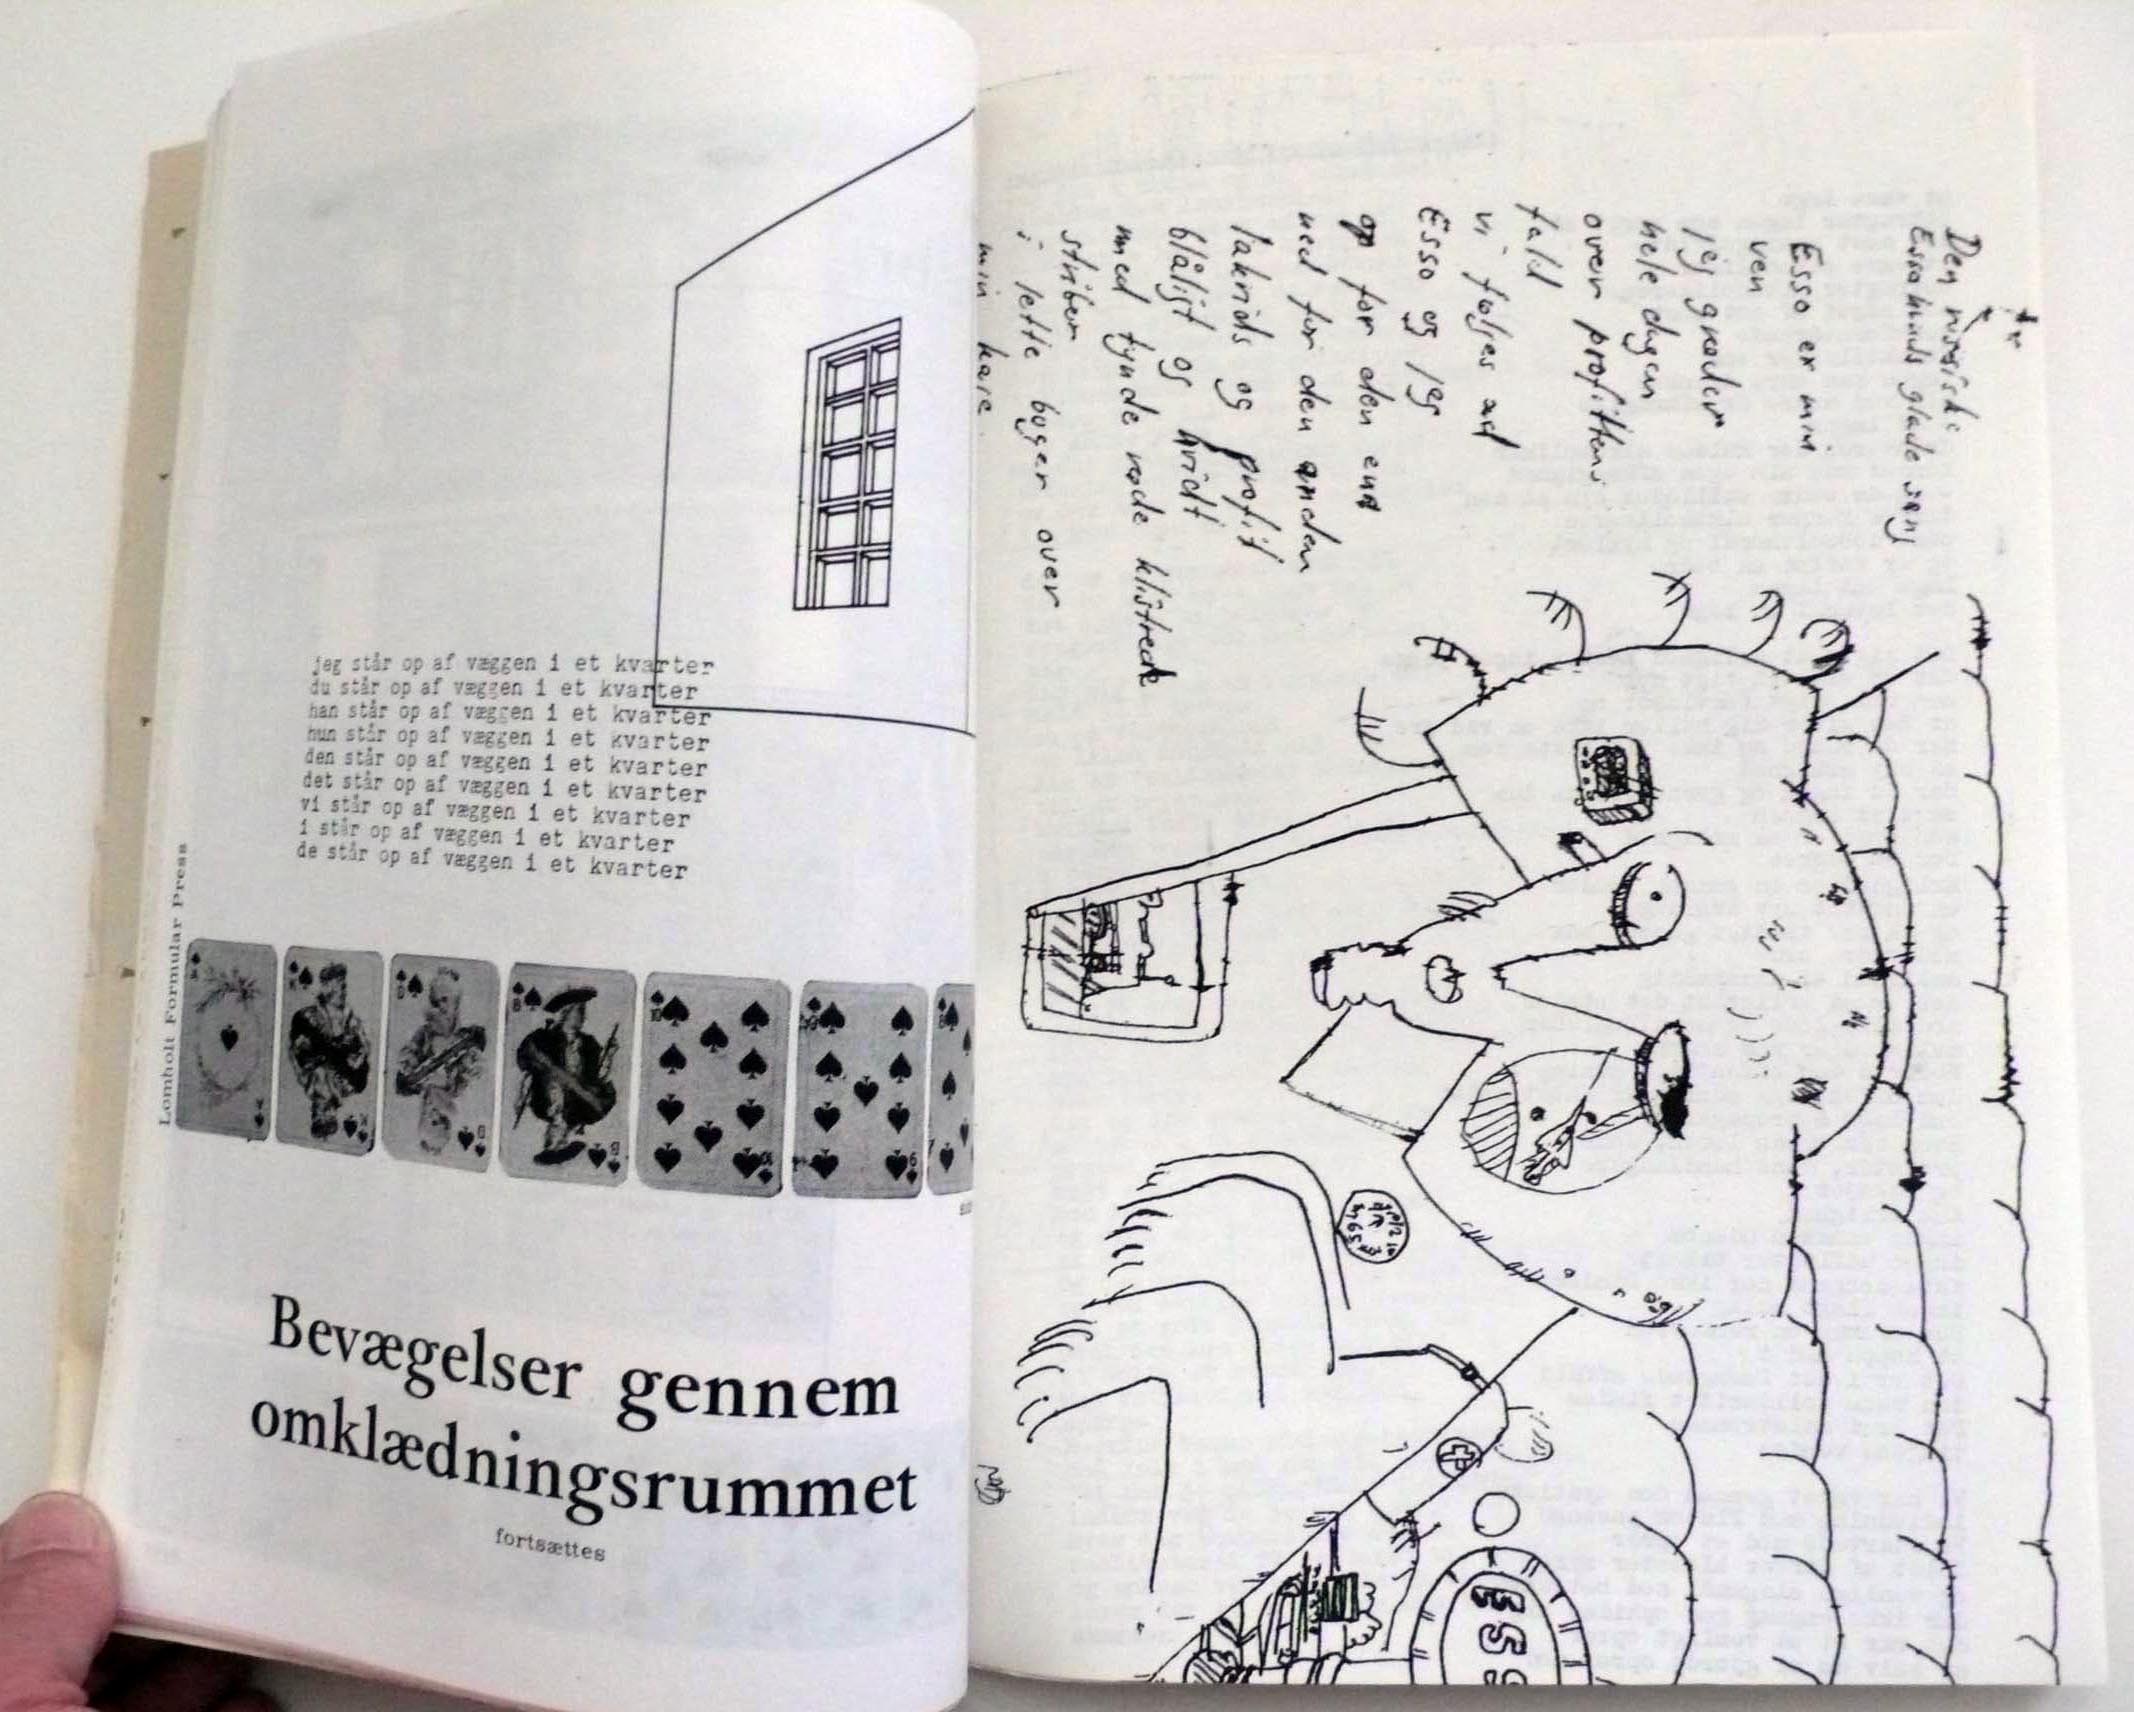 jeg står op af væggen i et kvarter
du står op af væggen i et kvarter
han står op af væggen i et kvarter
hun står op af væggen i et kvarter
den står op af væggen i et kvarter
det står op af væggen i et kvarter
vi står op af væggen i et kvarter
i står op af væggen i et kvarter
de står op af væggen i et kvarter
Lomholt Formular Press
Bevægelser gennem
omklædningsrummet
fortsættes
Den
Essomands glade sang
Esso er min
ven
jeg græder
hele dagen
over profittens
fald
vi følges ad
Esso og jeg
op for den ene
ned for den anden
lakrids og profit
blåligt og hvidt
med tynde røde klistrede
striber
i lette bøger over
min kære
ESSO